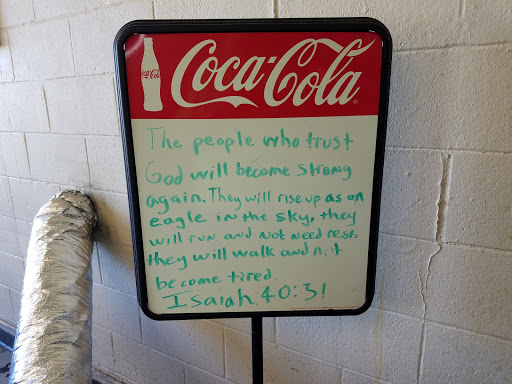 Coca-Cola
Coca-Cola
The people who trust
God will become strong
again. They will rise up as an
eagle in the sky, they
will run and not need rest,
they will walk and not
become tired.
Isaiah 40:31